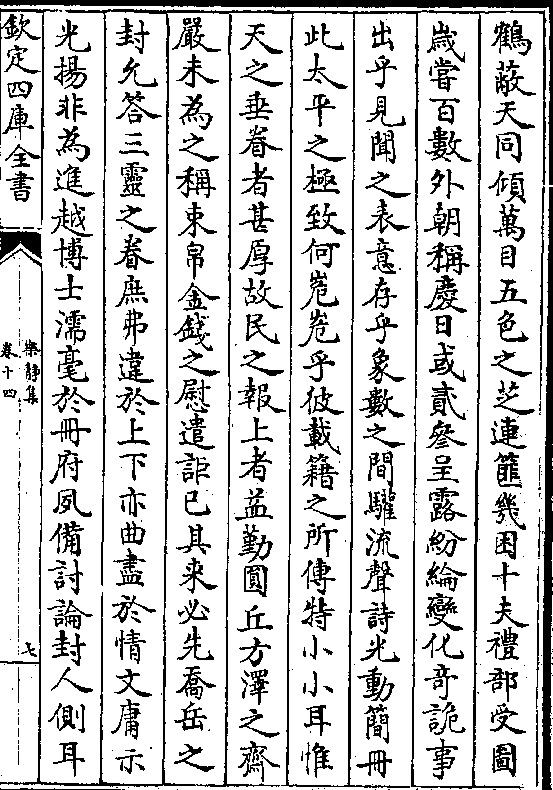 鶴蔽天同傾萬目五色之芝連篚幾困十夫禮部受圖
歲嘗百數外朝稱慶日或貳參呈露紛綸變化竒詭事
出乎見聞之表意存乎象數之間驩流聲詩光動簡冊
此太平之極致何嵬嵬乎彼載籍之所傳特小小耳惟
天之垂眷者甚厚故民之報上者益勤圓丘方澤之齋
嚴未為之稱束帛金錢之慰遣詎已其来必先喬岳之
封允答三靈之眷庶弗違於上下亦曲盡於情文庸示
光揚非為進越博士濡毫於冊府夙備討論封人側耳
欽定四庫全書
樂静集
卷十四
七